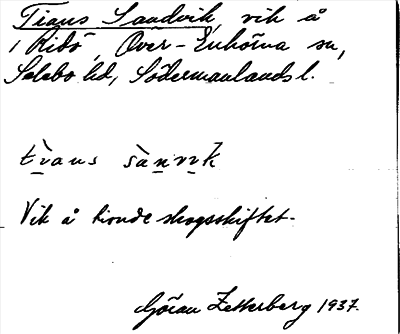 Tians Sandvik, vik å
i Ridö, Över-Enhörna sn,
Selebo hd, Södermanlands l.
Vik å tionde skogsskiftet.
Göran Zetterberg 1937.